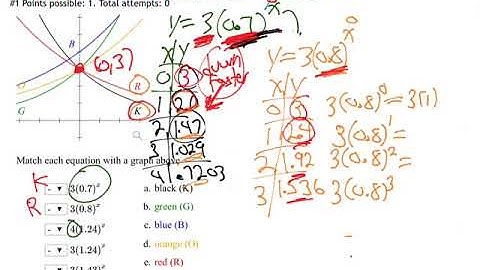 #1 Points possible: 1. Total attempts: 0
B
(0,3)
R
K
G
Match each equation with a graph above
K
3(0.7)^x
a. black (K)
R
3(0.8)^x
b. green (G)
4(1.24)^x
c. blue (B)
3(1.24)^x
d. orange (O)
e. red (R)
y = 3(0.7)^x ?
x y
0 3
1 2.1
2 1.47
3 1.029
4 .7203
down faster
y = 3(0.8)^x
x y
0 3
1 2.4
2 1.92
3 1.536
3(0.8)^0 = 3(1)
3(0.8)^1 =
3(0.8)^2 =
3(0.8)^3